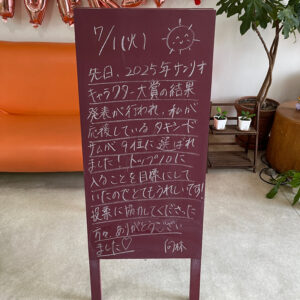 7/1(火)
先日、2025年サンリオ
キャラクター大賞の結果
発表が行われ、私が
応援しているタキシード
サムが9位に選ばれ
ました!トップ10に
入ることを目標にして
いたのでとてもうれしいです!
投票に協力してくださった
方々、ありがとうござい
ました♡